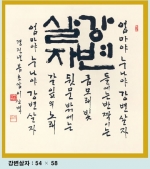 강변
살자
엄마야 누나야 강변 살자
뜰에는 반짝이는
금모래 빛
뒷문 밖에는
갈잎의 노래
엄마야 누나야 강변 살자
강변살자 : 54 × 58